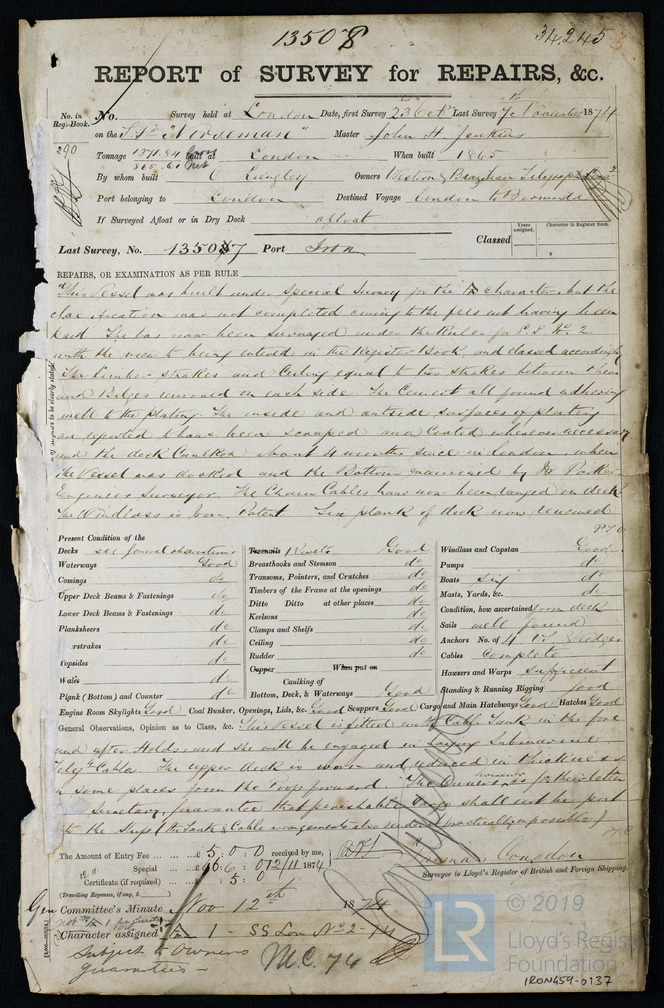 13508
34,245
3
REPORT of SURVEY for REPAIRS, &c.
No. in Reg. Book.
290
No. Survey held at London Date, first Survey 23 Octr Last Survey 7th November 1874
on the "Norseman" Master John H. Jenkins
Tonnage 1371.84 gross built at London When built 1865
865.61 net
By whom built C Lungley Owners Western & Brazilian Telegraph Coy
Port belonging to London Destined Voyage London to Bermuda
If Surveyed Afloat or in Dry Dock afloat
Last Survey, No. 13507 Port Iron Classed Years assigned. Character in Register Book.
REPAIRS, OR EXAMINATION AS PER RULE
"This Vessel was built under Special Survey for the A character, but the
classification was not completed owing to the fees not having been
paid. She has now been Surveyed under the Rules for S.S. No. 2
with the view to being entered in the Register Book, and classed accordingly
The Limber-strakes and Ceiling equal to two strakes between them
and Bilges removed on each side. The Cement all found adhering
well to the plating. The inside and outside surfaces of plating
are reported to have been scraped and Coated wherever necessary
and the deck Caulked about 4 months since in London, when
the Vessel was docked and the Bottom examined by Mr Parker
Engineer Surveyor. The Chain Cables have now been ranged on deck
The Windlass is Iron, Patent. Six plank of deck now renewed
P.T.O
Present Condition of the
Decks see general observations
Waterways Good
Comings do
Upper Deck Beams & Fastenings do
Lower Deck Beams & Fastenings do
Planksheers do
rstrakes do
Topsides do
Wales do
Plank (Bottom) and Counter do
Treenails Rivets Good
Breasthooks and Stemson do
Transoms, Pointers, and Crutches do
Timbers of the Frame at the openings do
Ditto Ditto at other places do
Keelsons do
Clamps and Shelfs do
Ceiling do
Rudder do
Copper When put on
Caulking of
Bottom, Deck, & Waterways Good
Windlass and Capstan Good
Pumps do
Boats six do
Masts, Yards, &c. do
Condition, how ascertained from deck
Sails well found
Anchors No. of 4 & 2 Kedges
Cables Complete
Hawsers and Warps sufficient
Standing & Running Rigging good
Engine Room Skylights Good Coal Bunker, Openings, Lids, &c. Good Scuppers Good Cargo and Main Hatchways Good Hatches Good
General Observations, Opinion as to Class, &c. This Vessel is fitted with Cable Tank in the fore
and after Holds, and she will be engaged in laying Submarine
Telegh Cables. The upper deck is worn and reduced in thickness
in some places from the Poop forward. The Owners however
Secretary, guarantee that perishable Cargo shall not be put
in the Ship (the Tank & Cable arrangements also render practically impossible)
P.T.O
The Amount of Entry Fee £ 5 : 0 : 0 received by me,
Special £ 66 : 6 : 0 12/11 1874
Certificate (if required) : 5 : 0
(Travelling Expenses, if any, £
Congdon
Surveyor to Lloyd's Register of British and Foreign Shipping.
Committee's Minute Nov 12th 1874
Character assigned A 1 - SS Lon No 2-74
Subject to Owners
guarantee -
M.C. 74
© 2019
LR
Lloyd's Register
Foundation
IRON459-0137